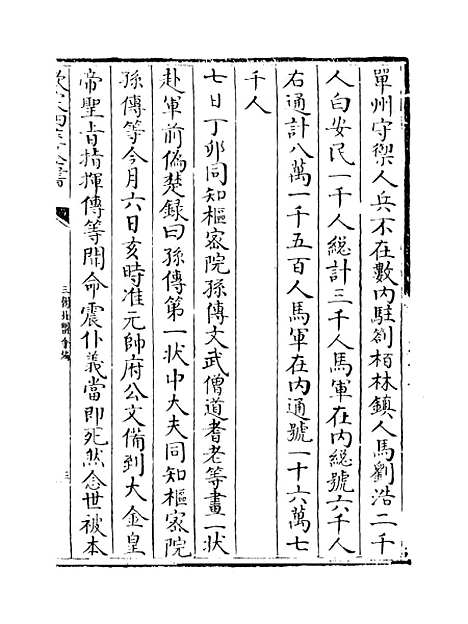 單州守禦人兵不在數內駐劄栢林鎮人馬劉浩二千
人白安民一千人総計三千人馬軍在內総號六千人
右通計八萬一千五百人馬軍在內通號一十六萬七
千人
七日丁卯同知樞密院孫傳文武僧道耆老等畫一狀
赴軍前偽楚録曰孫傳第一狀中大夫同知樞密院
孫傳等今月六日亥時准元帥府公文備到大金皇
帝聖旨指揮傳等聞命震仆義當即死然念世被本
欽定四庫全書
三朝北盟會編